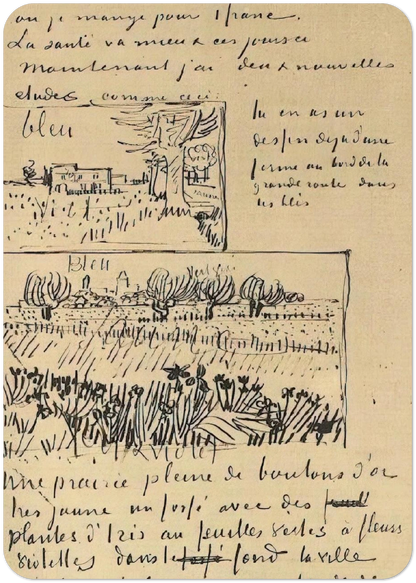 ou je mange pour 1 franc.
La santé va mieux ces jours ci
Maintenant j'ai deux nouvelles
etudes comme ceci:
tu en as un
dessin deja d'une
ferme au bord de la
grande route dans
les blés
bleu
Violet
Bleu
Violet
une prairie pleine de boutons d'or
tres jaune un fossé avec des
plantes d'Iris au feuilles vertes à fleurs
violettes dans le fond la ville